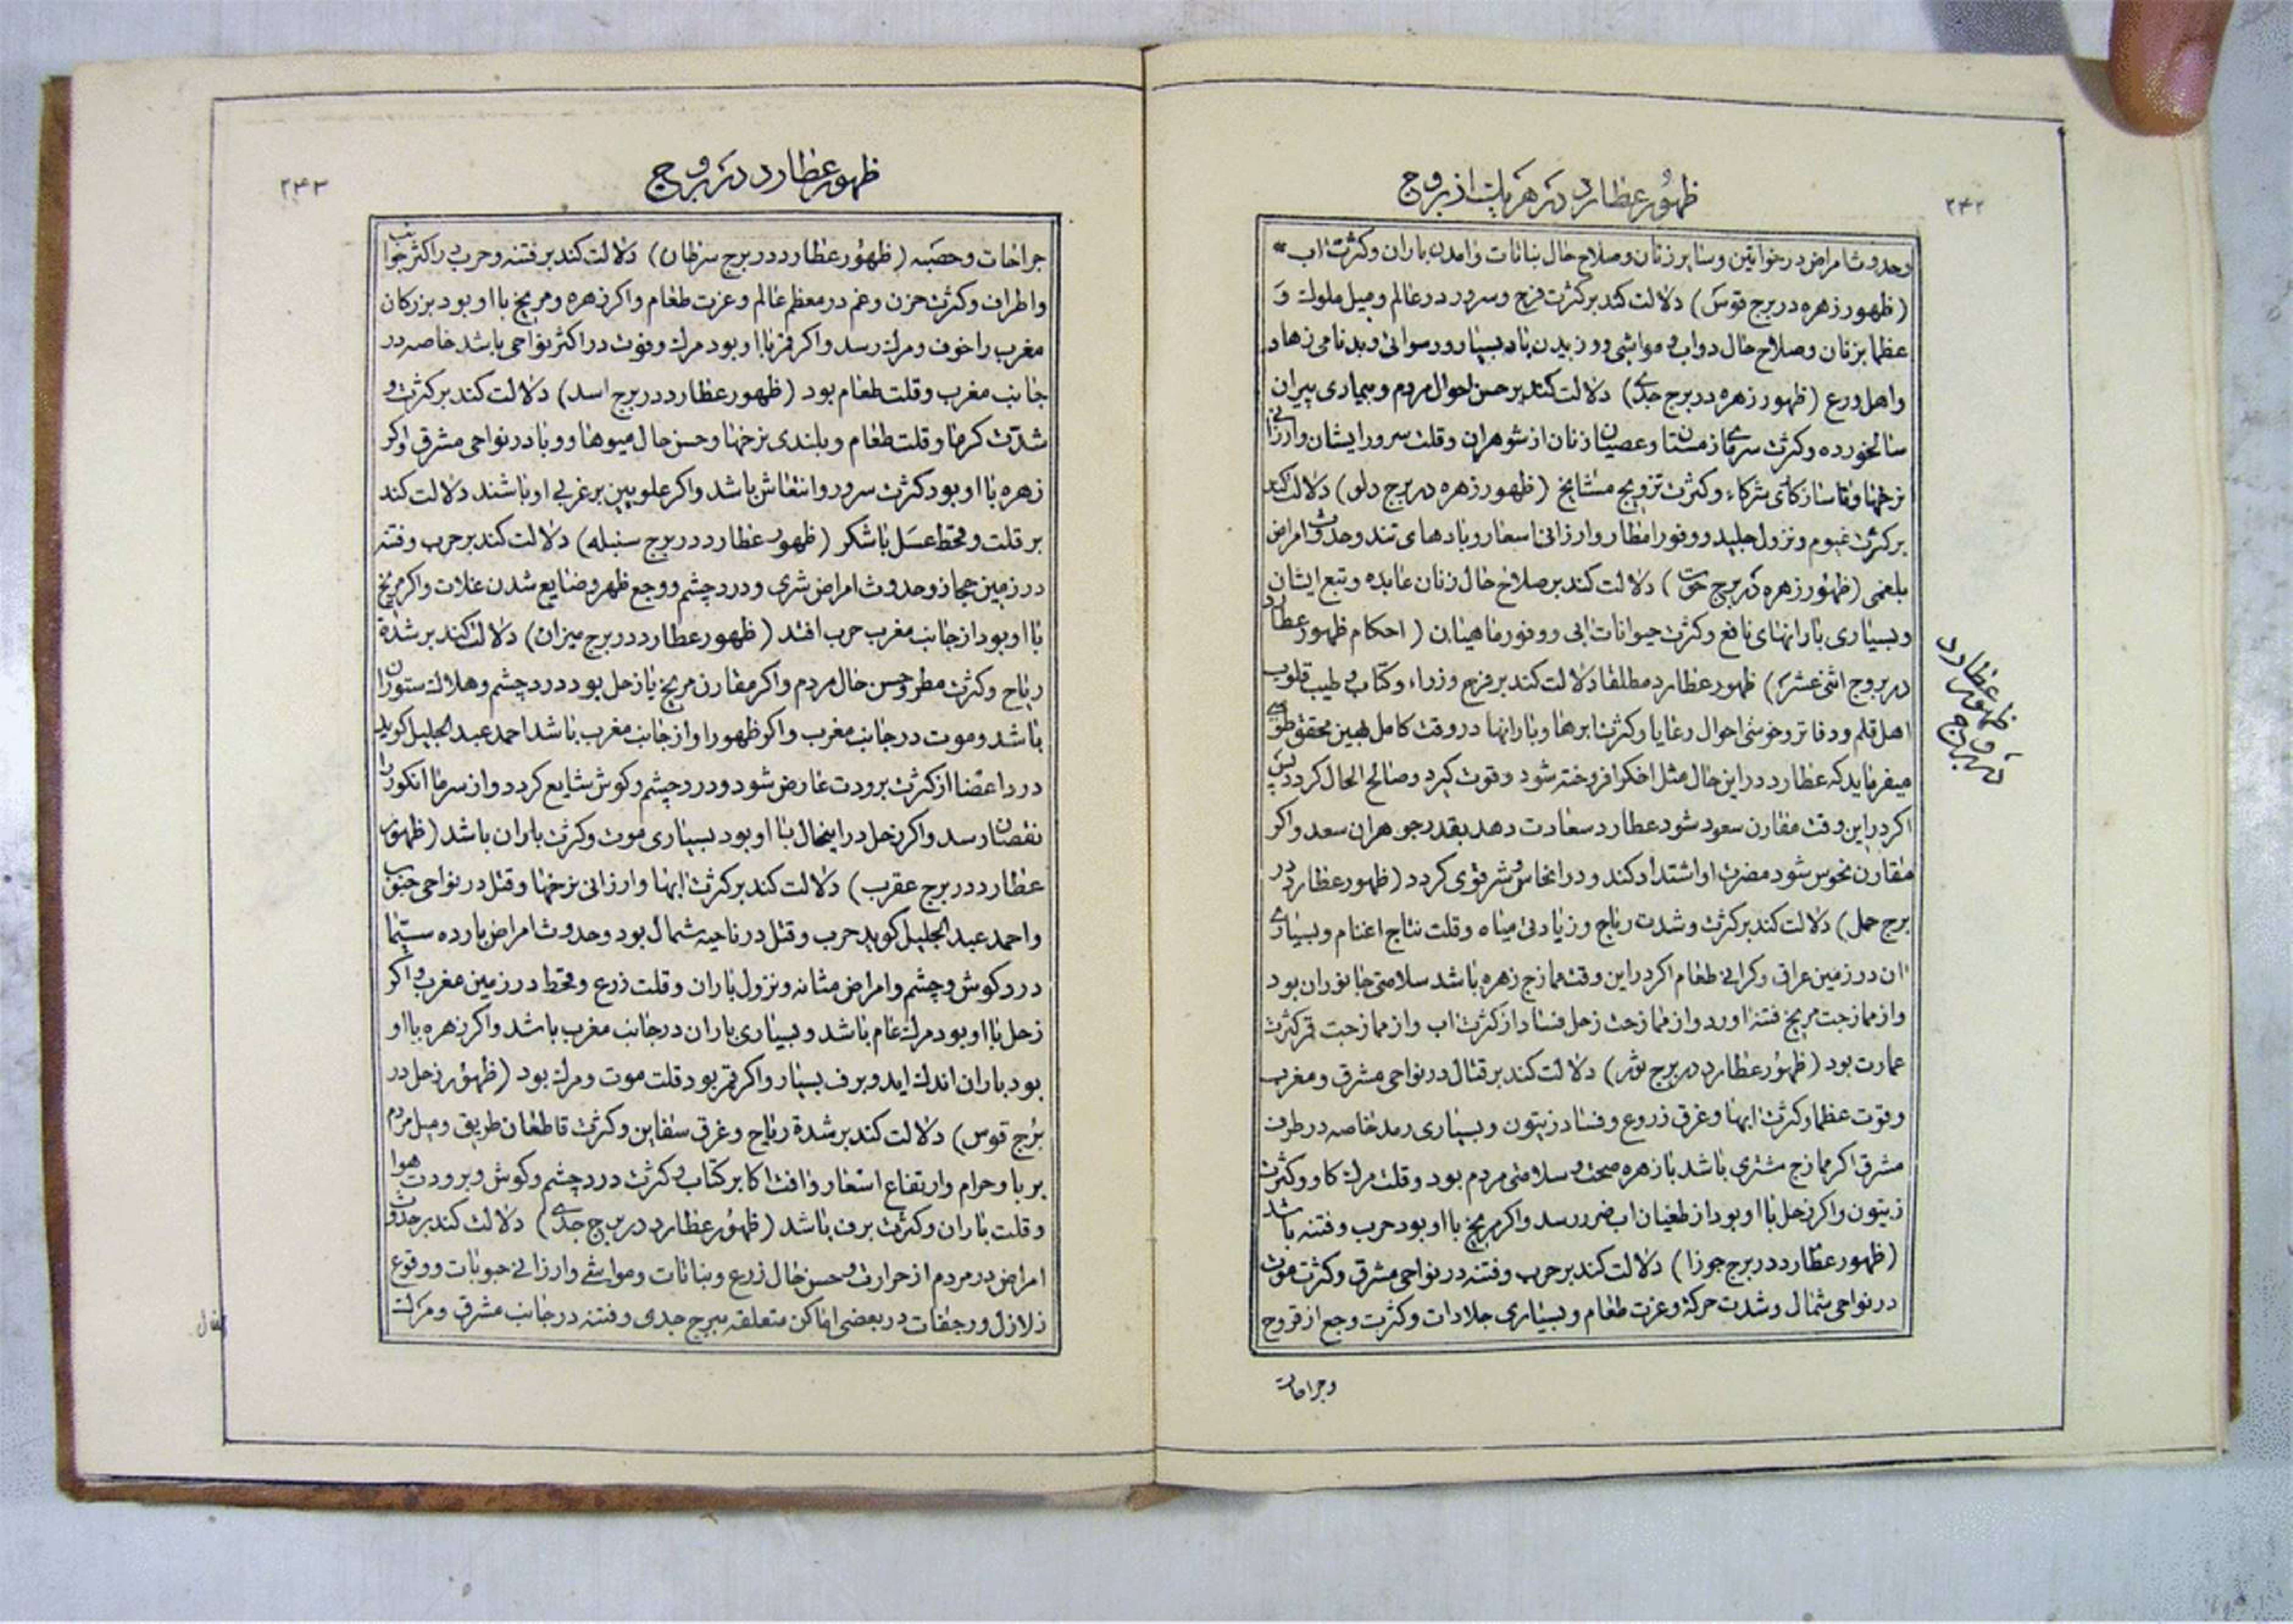 ۲۴۲
ظهور عطارد در هر یک از بروج
وحدوث امراض در خواتین و سایر زنان و صلاح حال نباتات و امدن باران و کثرت اب
(ظهور زهره در برج قوس) دلالت کند بر کثرت فرح و سرور در عالم و میل ملوک و
عظما بزنان و صلاح حال دواب و مواشی و وزیدن باد بسیار و رسوائی و بدنامی زهاد
و اهل ورع (ظهور زهره در برج جدی) دلالت کند بر حسن احوال مردم و بیماری پیران
سالخورده و کثرت سرمای زمستان و عصیان زنان از شوهران و قلت سرور ایشان و ارزانی
نرخها و فاسازکای شرکاء و کثرت تزویج مشایخ (ظهور زهره در برج دلو) دلالت کند
بر کثرت غیوم و نزول جلید و وفور امطار و ارزانی اسعار و بادهای تند و حدوث امراض
بلغمی (ظهور زهره در برج حوت) دلالت کند بر صلاح حال زنان عابده و تبع ایشان
و بسیاری بارانهای نافع و کثرت حیوانات ابی و وفور ماهیان (احکام ظهور عطارد
در بروج اثنی عشر) ظهور عطارد مطلقا دلالت کند بر فرح وزراء و کتاب و طیب قلوب
اهل قلم و دفاتر و خوشی احوال رعایا و کثرت ابرها و بارانها در وقت کامل هیین محقق طوسی
میفرماید که عطارد در این حال مثل اخکر افروخته شود و قوت کیرد و صالح الحال کردد پس
اکر در این وقت مقارن سعود شود عطارد سعادت دهد بقدر جوهر ان سعد و اکر
مقارن نحوس شود مضرت او اشتداد کند و در انحاس و شر قوی کردد (ظهور عطارد در
برج حمل) دلالت کند بر کثرت و شدت ریاح و زیادتی میاه و قلت نتاج اغنام و بسیاری
ان در زمین عراق و کرانی طعام اکر در این وقت ممازج زهره باشد سلامتی جانوران بود
و از ممازجت مریخ فتنه اورد و از ممازجت زحل فساد از کثرت اب و از ممازجت قمر کثرت
عمارت بود (ظهور عطارد در برج ثور) دلالت کند بر قتال در نواحی مشرق و مغرب
و قوت عظما و کثرت ابها و غرق زروع و فساد زیتون و بسیاری رمد خاصه در طرف
مشرق اکر ممازج مشتری باشد با زهره صحت و سلامتی مردم بود و قلت مرک کاو و کثرت
زیتون و اکر زحل با او بود از طغیان اب ضرر رسد و اکر مریخ با او بود حرب و فتنه باشد
(ظهور عطارد در برج جوزا) دلالت کند بر حرب و فتنه در نواحی مشرق و کثرت موت
در نواحی شمال و شدت حرکة و عزت طعام و بسیاری جلادات و کثرت وجع از قروح
و جراحات
ظهور عطارد
در بروج
۲۴۳
ظهور عطارد در بروج
جراحات و حصبه (ظهور عطارد در برج سرطان) دلالت کند بر فتنه و حرب در اکثر جوانب
و اطراف و کثرت حزن و غم در معظم عالم و عزت طعام و اکر زهره و مریخ با او بود بزرکان
مغرب را خوف و مرک رسد و اکر قمر با او بود مرک و فوت در اکثر نواحی باشد خاصه در
جانب مغرب و قلت طعام بود (ظهور عطارد در برج اسد) دلالت کند بر کثرت و
شدت کرما و قلت طعام و بلندی نرخها و حسن حال میوها و وبا در نواحی مشرق و اکر
زهره با او بود کثرت سرور و انتعاش باشد و اکر علویین بر غربی او باشند دلالت کند
بر قلت و قحط عسل یا شکر (ظهور عطارد در برج سنبله) دلالت کند بر حرب و فتنه
در زمین حجاز و حدوث امراض شری و درد چشم و وجع ظهر و ضایع شدن غلات و اکر مریخ
با او بود از جانب مغرب حرب افتد (ظهور عطارد در برج میزان) دلالت کند بر شدة
ریاح و کثرت مطر و حسن حال مردم و اکر مقارن مریخ یا زحل بود درد چشم و هلاک ستوران
باشد و موت در جانب مغرب و اکر ظهور او از جانب مغرب باشد احمد عبدالجلیل کوید
درد اعضا از کثرت برودت عارض شود و درد چشم و کوش شایع کردد و از سرما انکور را
نقصان رسد و اکر زحل در اینحال با او بود بسیاری موت و کثرت باران باشد (ظهور
عطارد در برج عقرب) دلالت کند بر کثرت ابها و ارزانی نرخها و قتل در نواحی جنوب
و احمد عبدالجلیل کوید حرب و قتل در ناحیه شمال بود و حدوث امراض بارده سیما
درد کوش و چشم و امراض مثانه و نزول باران و قلت زرع و قحط در زمین مغرب و اکر
زحل با او بود مرک عام باشد و بسیاری باران در جانب مغرب باشد و اکر زهره با او
بود باران اندک اید و برف بسیار و اکر قمر بود قلت موت و مرک بود (ظهور زحل در
برج قوس) دلالت کند بر شدة ریاح و غرق سفاین و کثرت قاطعان طریق و میل مردم
بر با و حرام و ارتفاع اسعار و افت اکابر کتاب و کثرت درد چشم و کوش و برودت هوا
و قلت باران و کثرت برف باشد (ظهور عطارد در برج جدی) دلالت کند بر حدوث
امراض در مردم از حرارت و حسن حال زرع و نباتات و مواشی و ارزانی حبوبات و وقوع
زلازل و رجفات در بعضی اماکن متعلقه ببرج جدی و فتنه در جانب مشرق و مرک